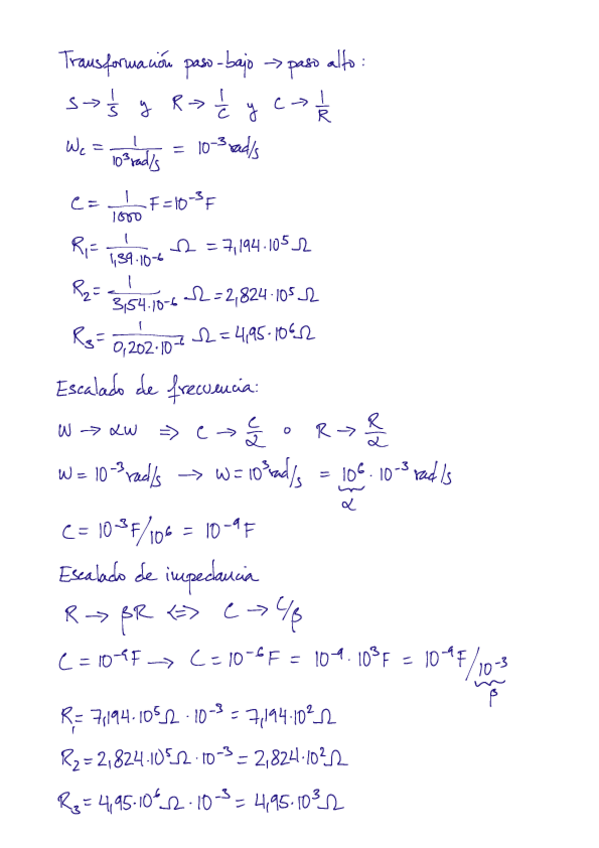 Transformación paso-bajo → paso alto:
S → 1/S y R → 1/C y C → 1/R
Wc = 1/10³ rad/s = 10⁻³ rad/s
C = 1/1000 F = 10⁻³ F
R₁ = 1/1,39·10⁻⁶ Ω = 7,194·10⁵ Ω
R₂ = 1/3,54·10⁻⁶ Ω = 2,824·10⁵ Ω
R₃ = 1/0,202·10⁻⁶ Ω = 4,95·10⁶ Ω
Escalado de frecuencia:
W → αW ⇒ C → C/α o R → R/α
W = 10⁻³ rad/s → W = 10³ rad/s = 10⁶ · 10⁻³ rad/s
α
C = 10⁻³ F/10⁶ = 10⁻⁹ F
Escalado de impedancia
R → βR ⇔ C → C/β
C = 10⁻⁹ F → C = 10⁻⁶ F = 10⁻⁹ · 10³ F = 10⁻⁹ F/10⁻³
β
R₁ = 7,194·10⁵ Ω · 10⁻³ = 7,194·10² Ω
R₂ = 2,824·10⁵ Ω · 10⁻³ = 2,824·10² Ω
R₃ = 4,95·10⁶ Ω · 10⁻³ = 4,95·10³ Ω